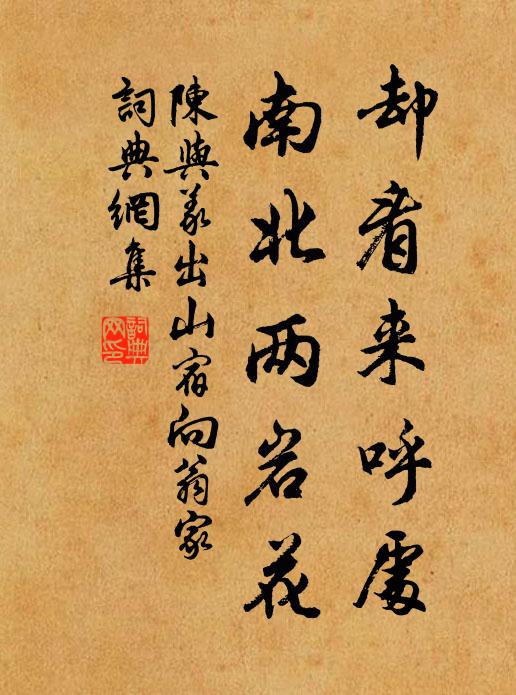 却看来呼處
南北两岩花
陳與義出山宿向翁家
詞典網集
詞典
网印